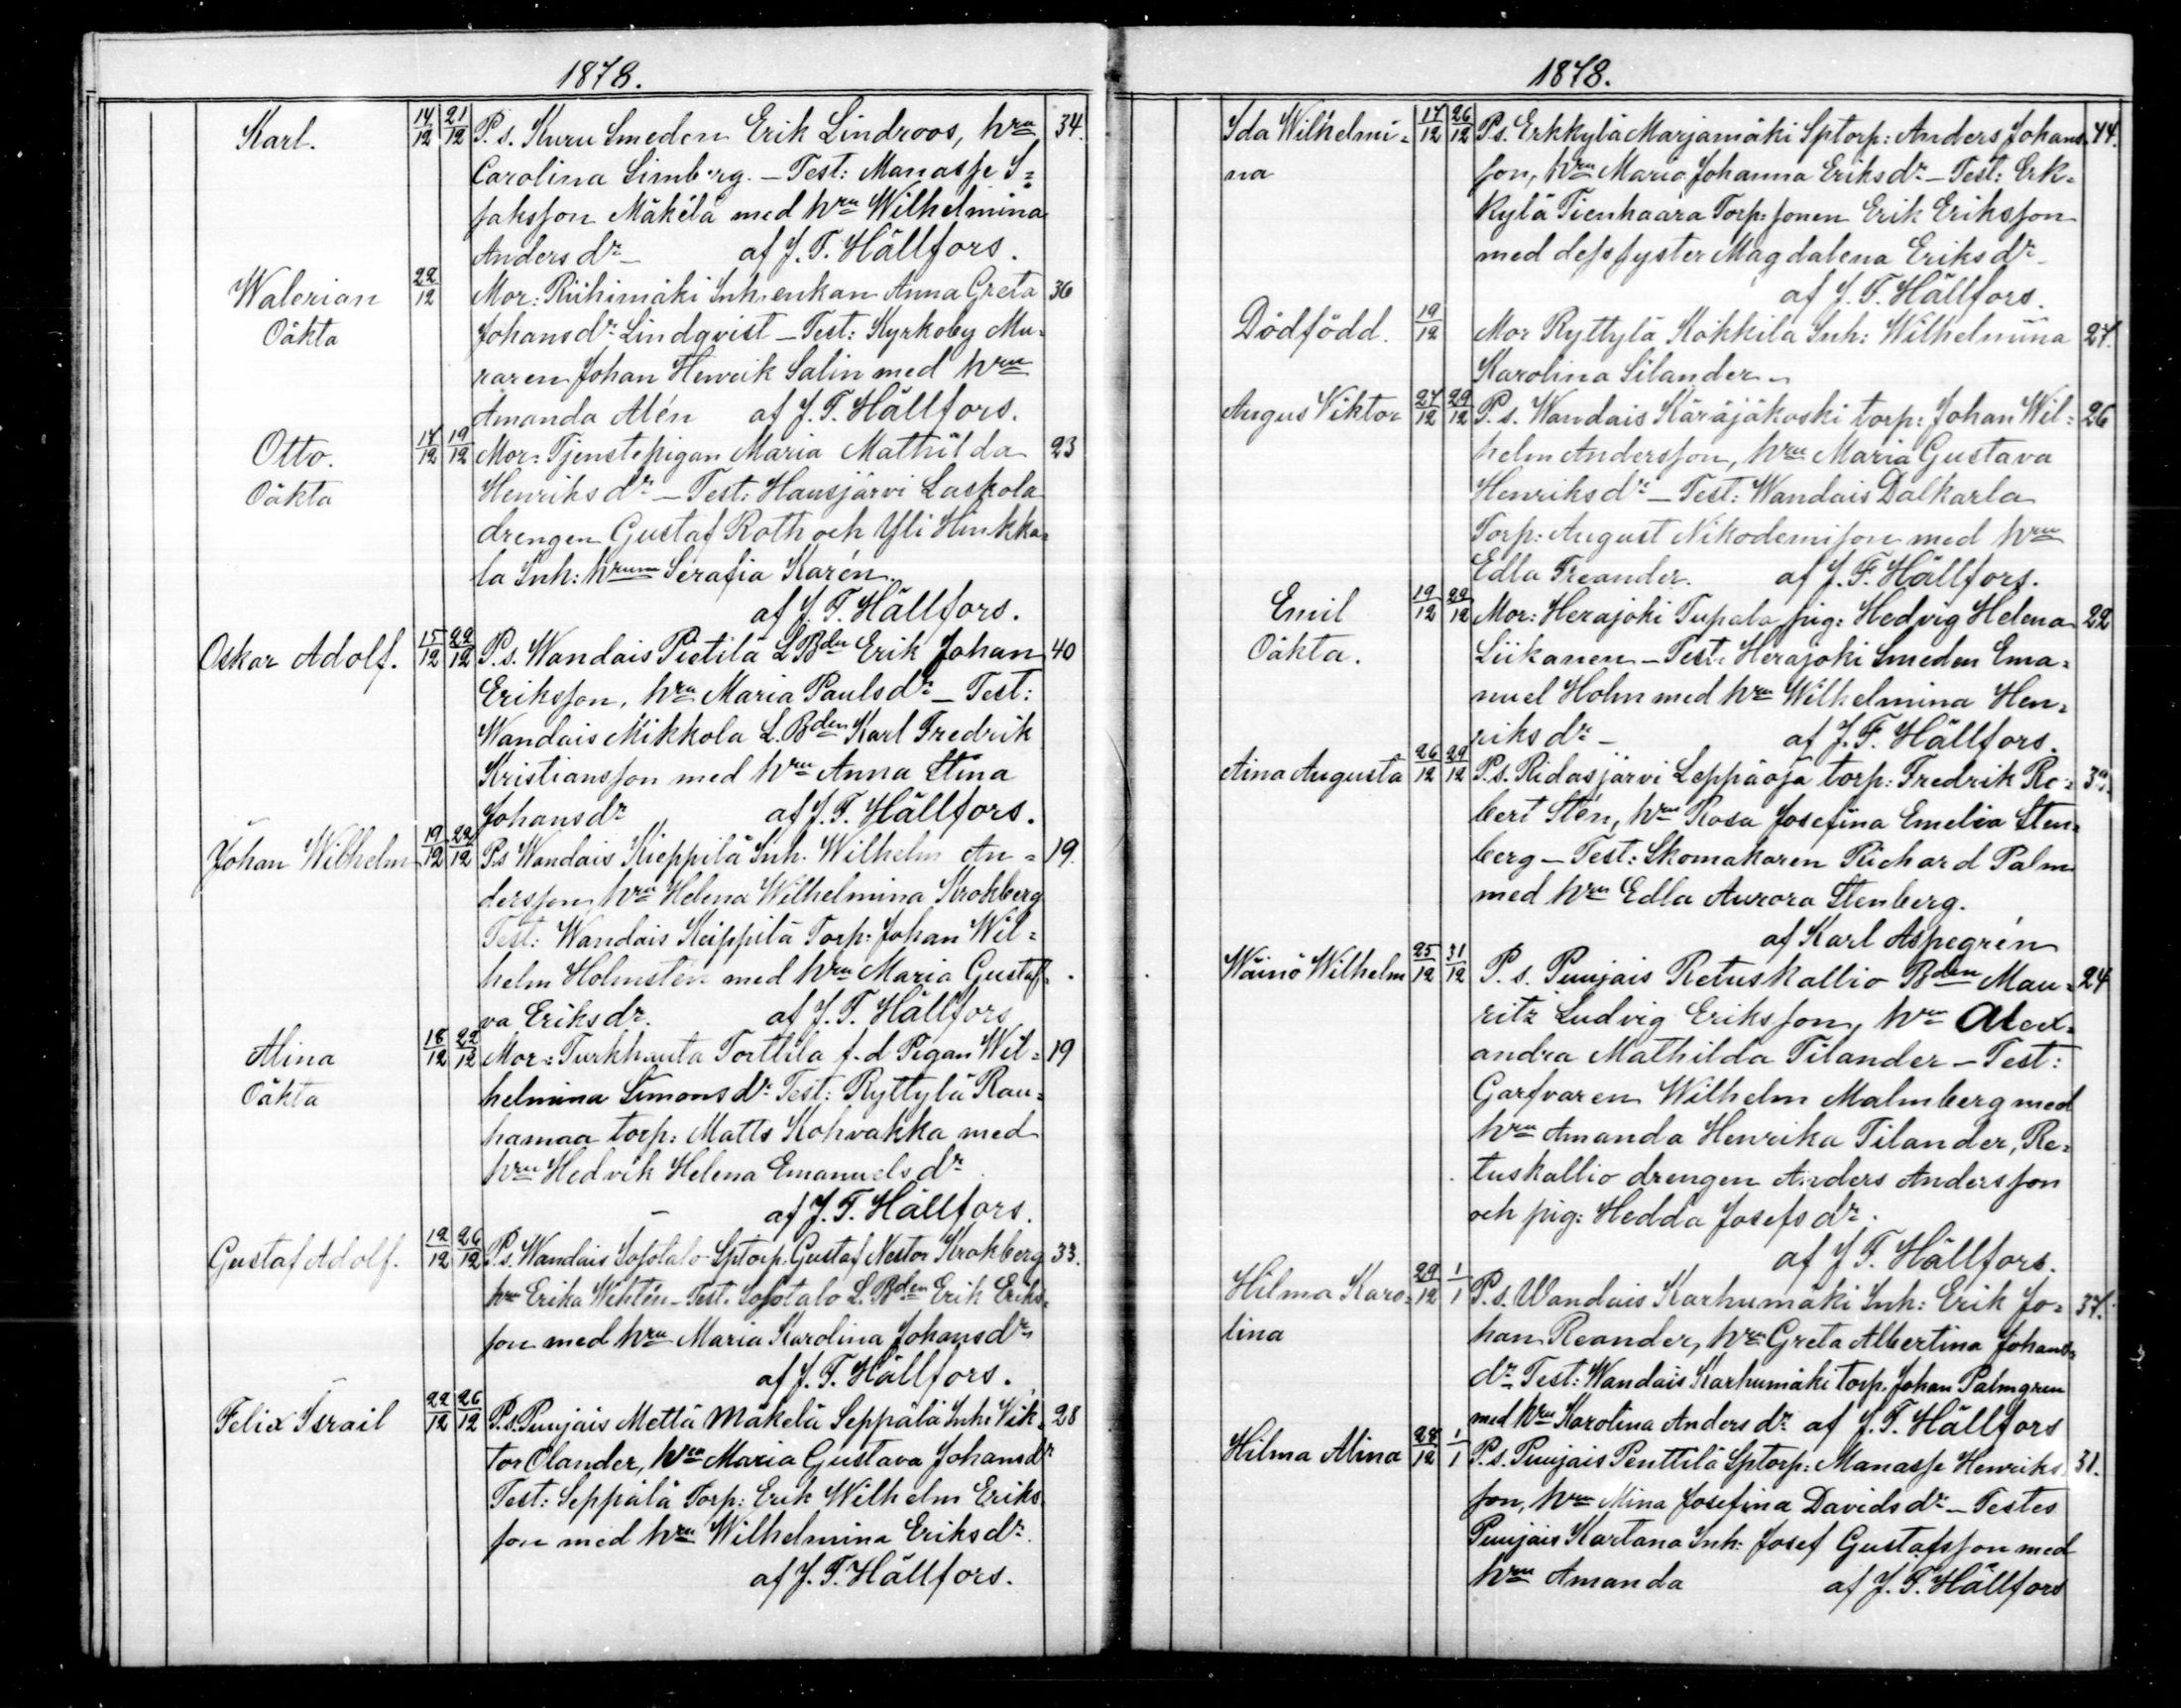 1878.
Karl. 14/12 21/12 P. s. Kuru Smeden Erik Lindroos, hru 34.
Carolina Limberg. – Test: Manasse I=
saksson Mäkelä med hru Wilhelmina
Anders dr – af J. F. Hällfors.
Walerian 22/12 Mor: Riihimäki Inh. enkan Anna Greta 36
Oäkta Johans dr Lindqvist – Test: Kyrkoby Mu=
raren Johan Henrik Salin med hru
Amanda Alén af J. F. Hällfors.
Otto. 17/12 19/12 Mor: Tjenstepigan Maria Mathilda 23
Oäkta Henriks dr – Test: Hausjärvi Laskola
drengen Gustaf Roth och Yli Hinkka=
la Inh: hrum Serafia Karén.
af J. F. Hällfors.
Oskar Adolf. 15/12 22/12 P. s. Wandais Pietilä L Bdn Erik Johan 40
Eriksson, hru Maria Pauls dr – Test:
Wandais Mikkola L. Bden Karl Fredrik
Kristiansson med hru Anna Stina
Johans dr af J. F. Hällfors.
Johan Wilhelm 19/12 22/12 P.s Wandais Kieppilä Inh. Wilhelm An= 19.
dersson hru Helena Wilhelmina Krokberg
Test: Wandais Keippilä Torp: Johan Wil=
helm Holmstén med hru Maria Gustaf=
va Eriks dr. af J. F. Hällfors
Alina 18/12 22/12 Mor: Turkhauta Torttila f.d Pigan Wil= 19
Oäkta helmina Simons dr Test: Ryttylä Rau=
hamaa torp: Matts Kohvakka med
hru Hedvik Helena Emanuels dr
– af J. F. Hällfors.
Gustaf Adolf. 12/12 26/12 P.s. Wandais Sosotalo Sptorp. Gustaf Nestor Krokberg 33.
hru Erika Wehtén – Test. Sosotalo L. Bden Erik Eriks=
son med hru Maria Karolina Johans dr
af J. F. Hällfors.
Felix Israil 22/12 26/12 P.s. Puujais Mettä Mäkelä Seppälä Inh: Vik= 28
tor Olander, hru Maria Gustava Johans dr
Test: Seppälä Torp: Erik Wilhelm Eriks
son med hru Wilhelmina Eriks dr.
af J. F. Hällfors.
1878.
Ida Wilhelmi= 17/12 26/12 Ps. Erkkylä Marjamäki Sptorp: Anders Johans 44.
na son, hru Maria Johanna Eriks dr – Test: Erk=
kylä Tienhaara Torp: sonen Erik Eriksson
med dess syster Magdalena Eriks dr –
af J. F. Hällfors.
Dödfödd. 19/12 Mor Ryttylä Kökkilä Inh: Wilhelmina 27.
Karolina Silander –
Augus Viktor 27/12 29/12 P. s. Wandais Käräjäkoski torp: Johan Wil= 26
helm Andersson, hru Maria Gustava
Henriks dr – Test: Wandais Dalkarla
Torp: August Nikodemisson med hru
Edla Treander. af J. F. Hällfors.
Emil 19/12 29/12 Mor: Herajoki Tupala pig: Hedvig Helena 22
Oäkta. Liikanen – Test: Herajoki Smeden Ema=
nuel Holm med hru Wilhelmina Hen=
riks dr – af J. F. Hällfors.
Aina Augusta 26/12 29/12 P.s. Ridasjärvi Leppäoja torp: Fredrik Ro=
bert Stén, hru Rosa Josefina Emelia Sten=
berg – Test: Skomakaren Richard Palm
med hru Edla Aurora Stenberg.
af Karl Aspegrén
Wäinö Wilhelm 25/12 31/12 P. s. Puujais Retuskallio Bden Mau= 24
ritz Ludvig Eriksson, hru Alex=
andra Mathilda Tilander – Test:
Garfvaren Wilhelm Malmberg med
hru Amanda Henrika Tilander, Re=
tuskallio drengen Anders Andersson
och pig: Hedda Josefs dr.
af J. F. Hällfors.
Hilma Karo= 29/12 1/1 P. s. Wandais Karhumäki Inh: Erik Jo= 37.
lina han Reander, hru Greta Albertina Johans=
dr Test: Wandais Karhumäki torp. Johan Palmgren
med hru Karolina Anders dr af J. F. Hällfors
Hilma Alina 28/12 1/1 P. s. Puujais Penttilä Sptorp: Manasse Henriks 31.
son, hru Mina Josefina Davids dr – Testes
Puujais Kartana Inh: Josef Gustafsson med
hru Amanda af J. F. Hällfors